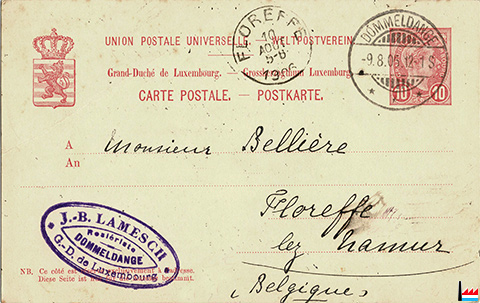 UNION POSTALE UNIVERSELLE. WELTPOSTVEREIN.
Grand-Duché de Luxembourg. Grossherzogthum Luxemburg.
CARTE POSTALE. — POSTKARTE.
FLOREFFE
10
AOUT
5-6
1906
DOMMELDANGE
-9.8.06.12-1 S
10 10
A
An
Monsieur Bellière
Floreffe
lez Namur
(Belgique)
J.-B. LAMESCH
Rosiériste
DOMMELDANGE
G.-D. de Luxembourg
NB. Ce côté est exclusivement adresse.
Diese Seite ist bestimmt.